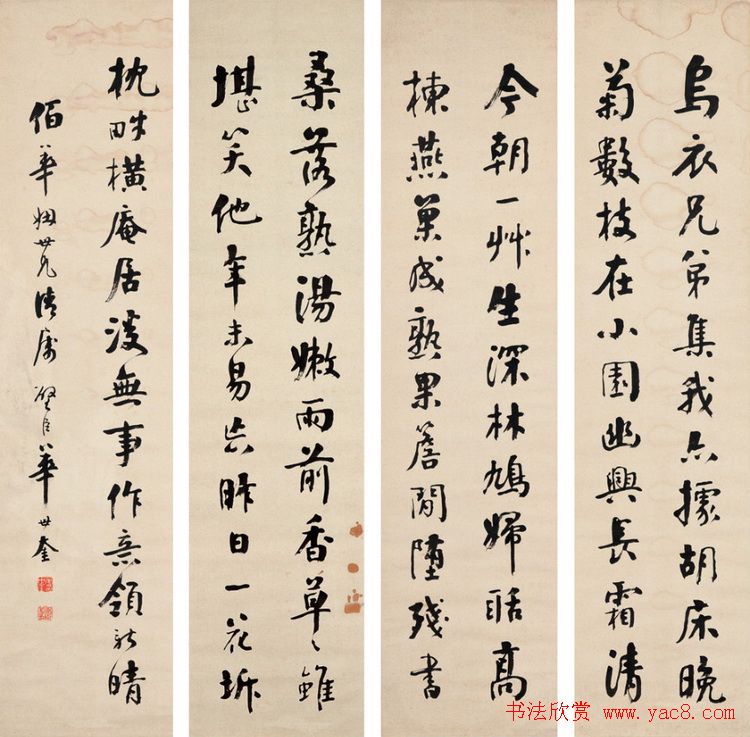 烏衣兄弟集我亦據胡床晚
菊數枝在小園幽興長霜清
今朝一艸生深林鳩婦聒高
棟燕巢成熟果簷間墮殘書
桑落熟湯嫩雨前香草〻雖
堪笑他年未易忘昨日一花坼
枕畔橫庵居復無事作意領新晴
佰華姻世兄清屬 璧臣華世奎
书法欣赏 www.yac8.com